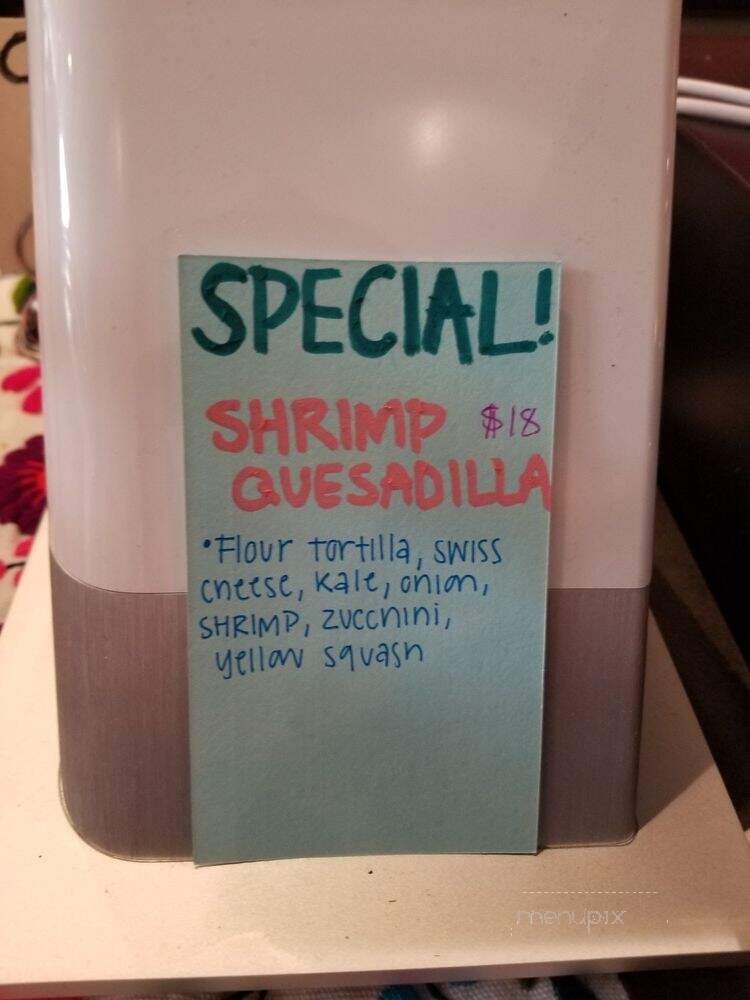 SPECIAL!
SHRIMP $18
QUESADILLA
•Flour tortilla, swiss
cheese, kale, onion,
SHRIMP, zucchini,
yellow squash
menupix